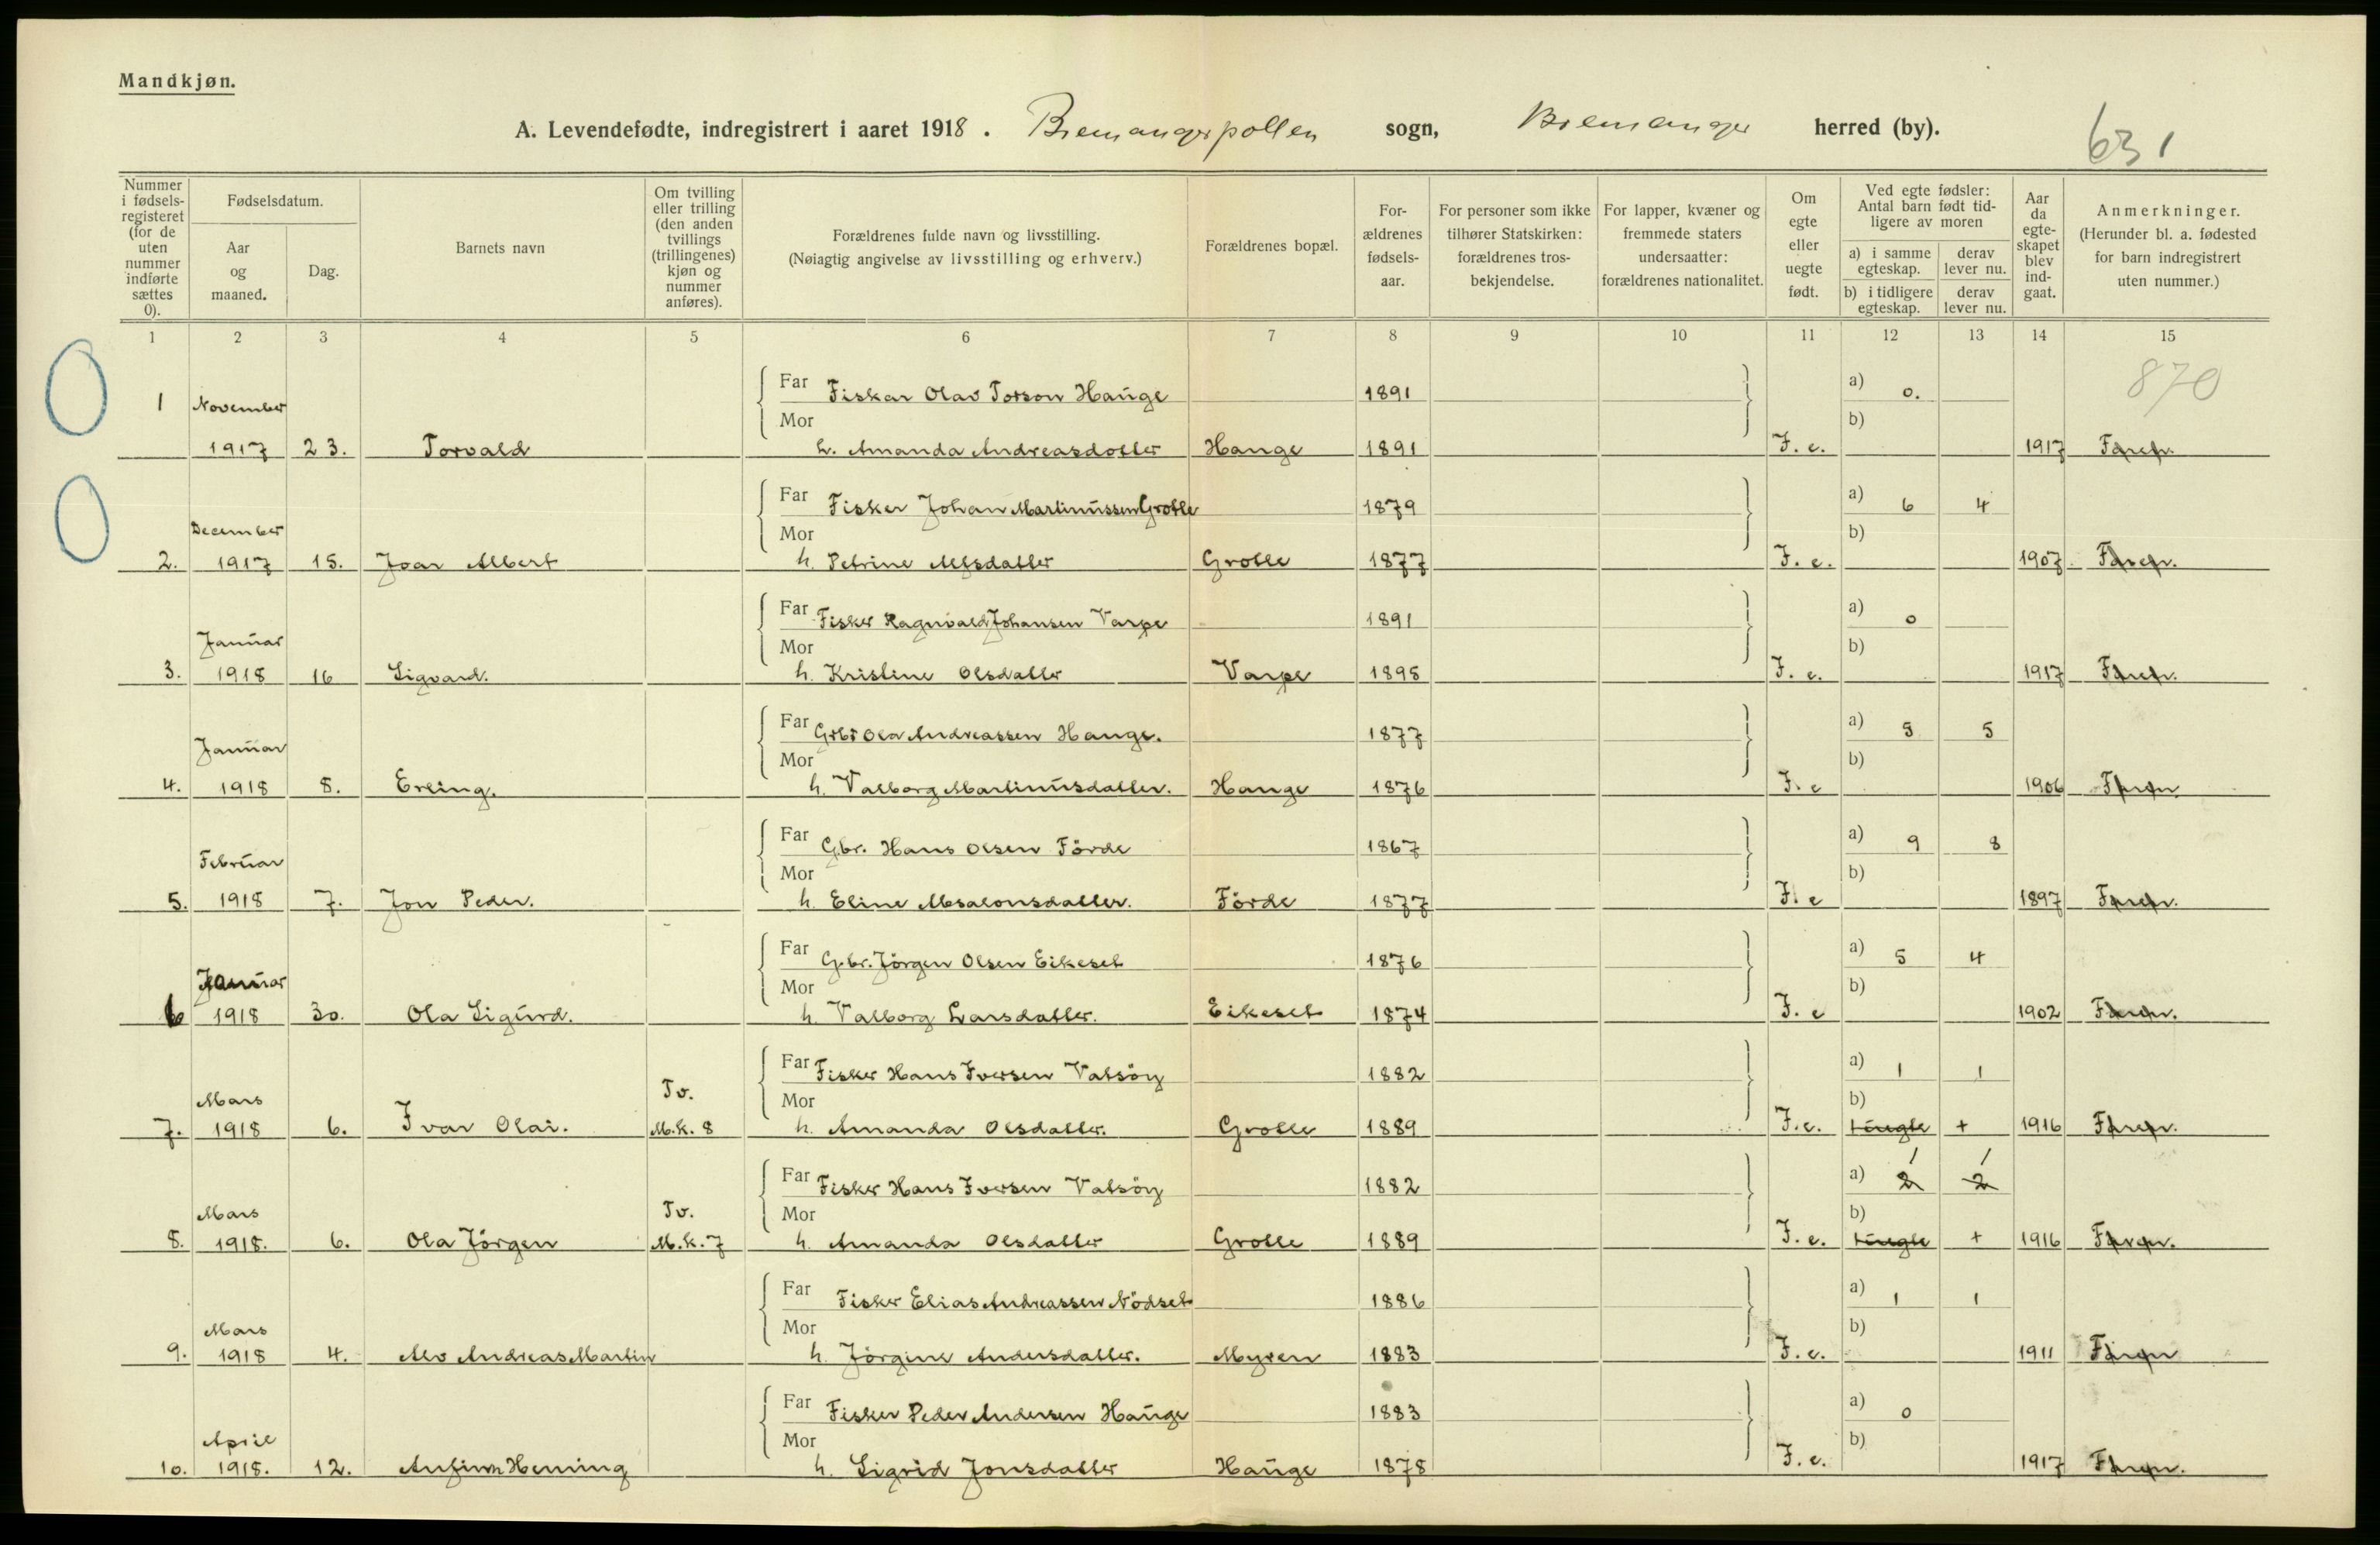 Mandkjøn.
A. Levendefødte, indregistrert i aaret 1918. Bremangerpollen sogn, Bremanger herred (by).
631
Nummer i fødselsregisteret (for de uten nummer indførte sættes 0).
Fødselsdatum.
Aar og maaned.
Dag.
Barnets navn
Om tvilling eller trilling (den anden tvillings (trillingenes) kjøn og nummer anføres).
Forældrenes fulde navn og livsstilling. (Nøiagtig angivelse av livsstilling og erhverv.)
Forældrenes bopæl.
Forældrenes fødselsaar.
For personer som ikke tilhører Statskirken: forældrenes trosbekjendelse.
For lapper, kvæner og fremmede staters undersaatter: forældrenes nationalitet.
Om egte eller uegte født.
Ved egte fødsler: Antal barn født tidligere av moren
a) i samme egteskap. derav lever nu.
b) i tidligere egteskap. derav lever nu.
Aar da egteskapet blev indgaat.
Anmerkninger. (Herunder bl. a. fødested for barn indregistrert uten nummer.)
1 2 3 4 5 6 7 8 9 10 11 12 13 14 15
870
1 November Far Fiskar Olav Torson Hauge 1891 a) 0.
Mor b)
1917 23. Torvald h. Amanda Andreasdotter Hauge 1891 F. e. 1917
December Far Fisker Johan Martinussen Grotle 1879 a) 6 4
Mor b)
2. 1917 15. Joar Albert h. Petrine Alfsdatter Grotle 1877 F. e. 1907
Januar Far Fisker Ragnvald Johansen Varpe 1891 a) 0
Mor b)
3. 1918 16 Sigvard. h. Kristine Olsdatter Varpe 1895 F. e. 1917
Januar Far Gbr Ola Andreassen Hauge. 1877 a) 5 5
Mor b)
4. 1918 8. Erling. h. Valborg Martinusdatter. Hauge 1876 F. e 1906
Februar Far Gbr. Hans Olsen Förde 1867 a) 9 8
Mor b)
5. 1918 7. Jon Peder. h. Eline Absalonsdatter. Förde 1877 F. e 1897
Januar Far Gbr. Jörgen Olsen Eikeset 1876 a) 5 4
Mor b)
6 1918 30. Ola Sigurd. h. Valborg Larsdatter. Eikeset 1874 F. e 1902
Mars Tv. Far Fisker Hans Iversen Vatsöy 1882 a) 1 1
Mor b)
7. 1918 6. Ivar Olai. M.k. 8 h. Amanda Olsdatter. Grotle 1889 F. e. + 1916
Mars Tv. Far Fisker Hans Iversen Vatsöy 1882 a) 2 1 2 1
Mor b)
8. 1918. 6. Ola Jörgen M.k. 7 h. Amanda Olsdatter Grotle 1889 F. e. + 1916
Mars Far Fisker Elias Andreassen Nödset 1886 a) 1 1
Mor b)
9. 1918 4. Alv Andreas Martin h. Jörgine Andersdatter. Myren 1883 F. e. 1911
April Far Fisker Peder Andersen Hauge 1883 a) 0
Mor b)
10. 1918. 12. Anfinn Henning h. Sigrid Jonsdatter Hauge 1878 F. e. 1917